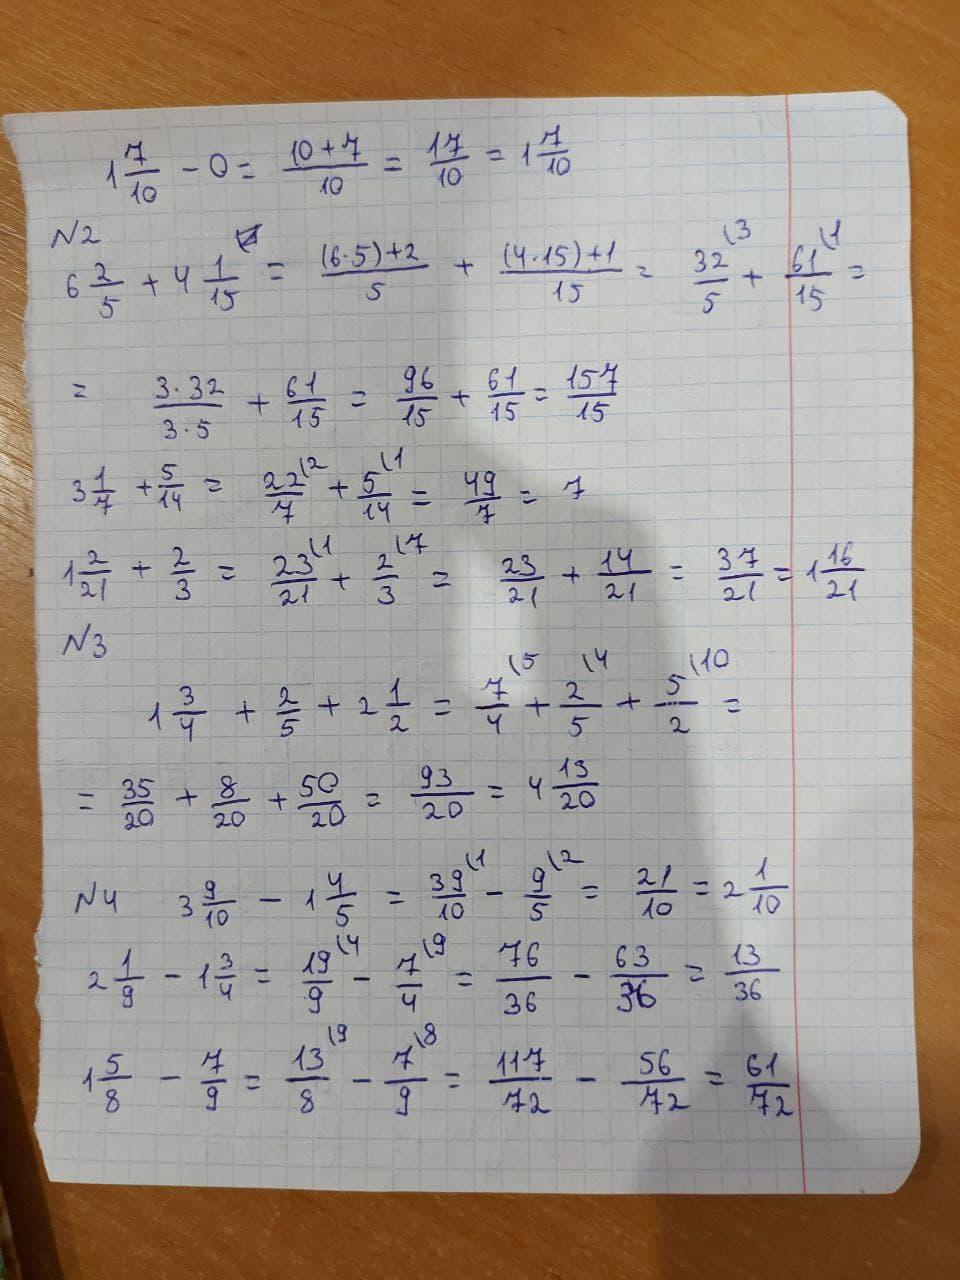 1 7/10 - 0 = (10+7)/10 = 17/10 = 1 7/10
N2
6 2/5 + 4 1/15 = ((6·5)+2)/5 + ((4·15)+1)/15 = 32/5 \3 + 61/15 \1 =
= (3·32)/(3·5) + 61/15 = 96/15 + 61/15 = 157/15
3 1/7 + 5/14 = 22/7 \2 + 5/14 \1 = 49/7 = 7
1 2/21 + 2/3 = 23/21 \1 + 2/3 \7 = 23/21 + 14/21 = 37/21 = 1 16/21
N3
1 3/4 + 2/5 + 2 1/2 = 7/4 \5 + 2/5 \4 + 5/2 \10 =
= 35/20 + 8/20 + 50/20 = 93/20 = 4 13/20
N4 3 9/10 - 1 4/5 = 39/10 \1 - 9/5 \2 = 21/10 = 2 1/10
2 1/9 - 1 3/4 = 19/9 \4 - 7/4 \9 = 76/36 - 63/36 = 13/36
1 5/8 - 7/9 = 13/8 \9 - 7/9 \8 = 117/72 - 56/72 = 61/72